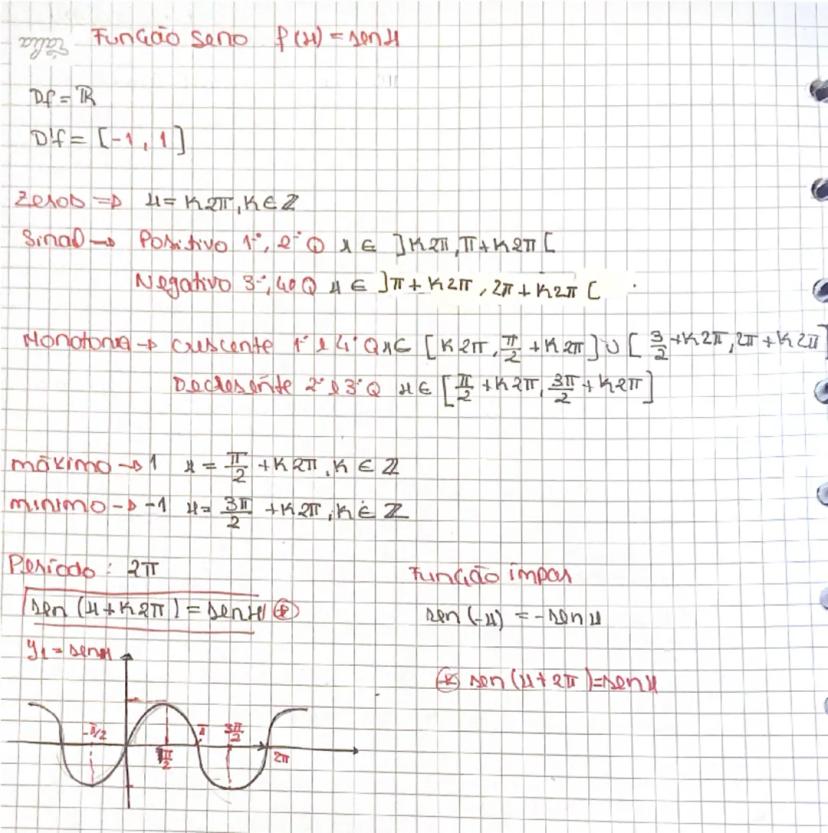 Função seno f(x) = sen x
Df = ℝ
D'f = [-1, 1]
Zeros => x = K2π, K ∈ ℤ
Sinal → Positivo 1°, 2° Q x ∈ ]K2π, π + K2π[
Negativo 3°, 4° Q x ∈ ]π + K2π, 2π + K2π[
Monotonia → Crescente 1° e 4° Q x ∈ [K2π, π/2 + K2π] ∪ [3/2 + K2π, 2π + K2π]
Decrescente 2° e 3° Q x ∈ [π/2 + K2π, 3π/2 + K2π]
máximo → 1 x = π/2 + K2π, K ∈ ℤ
mínimo → -1 x = 3π/2 + K2π, K ∈ ℤ
Período: 2π
Função ímpar
sen (x + K2π) = sen x ⊛
sen (-x) = - sen x
y1 = sen x
⊛ sen (x + 2π) = sen x
-π/2 π/2 π 3π/2 2π